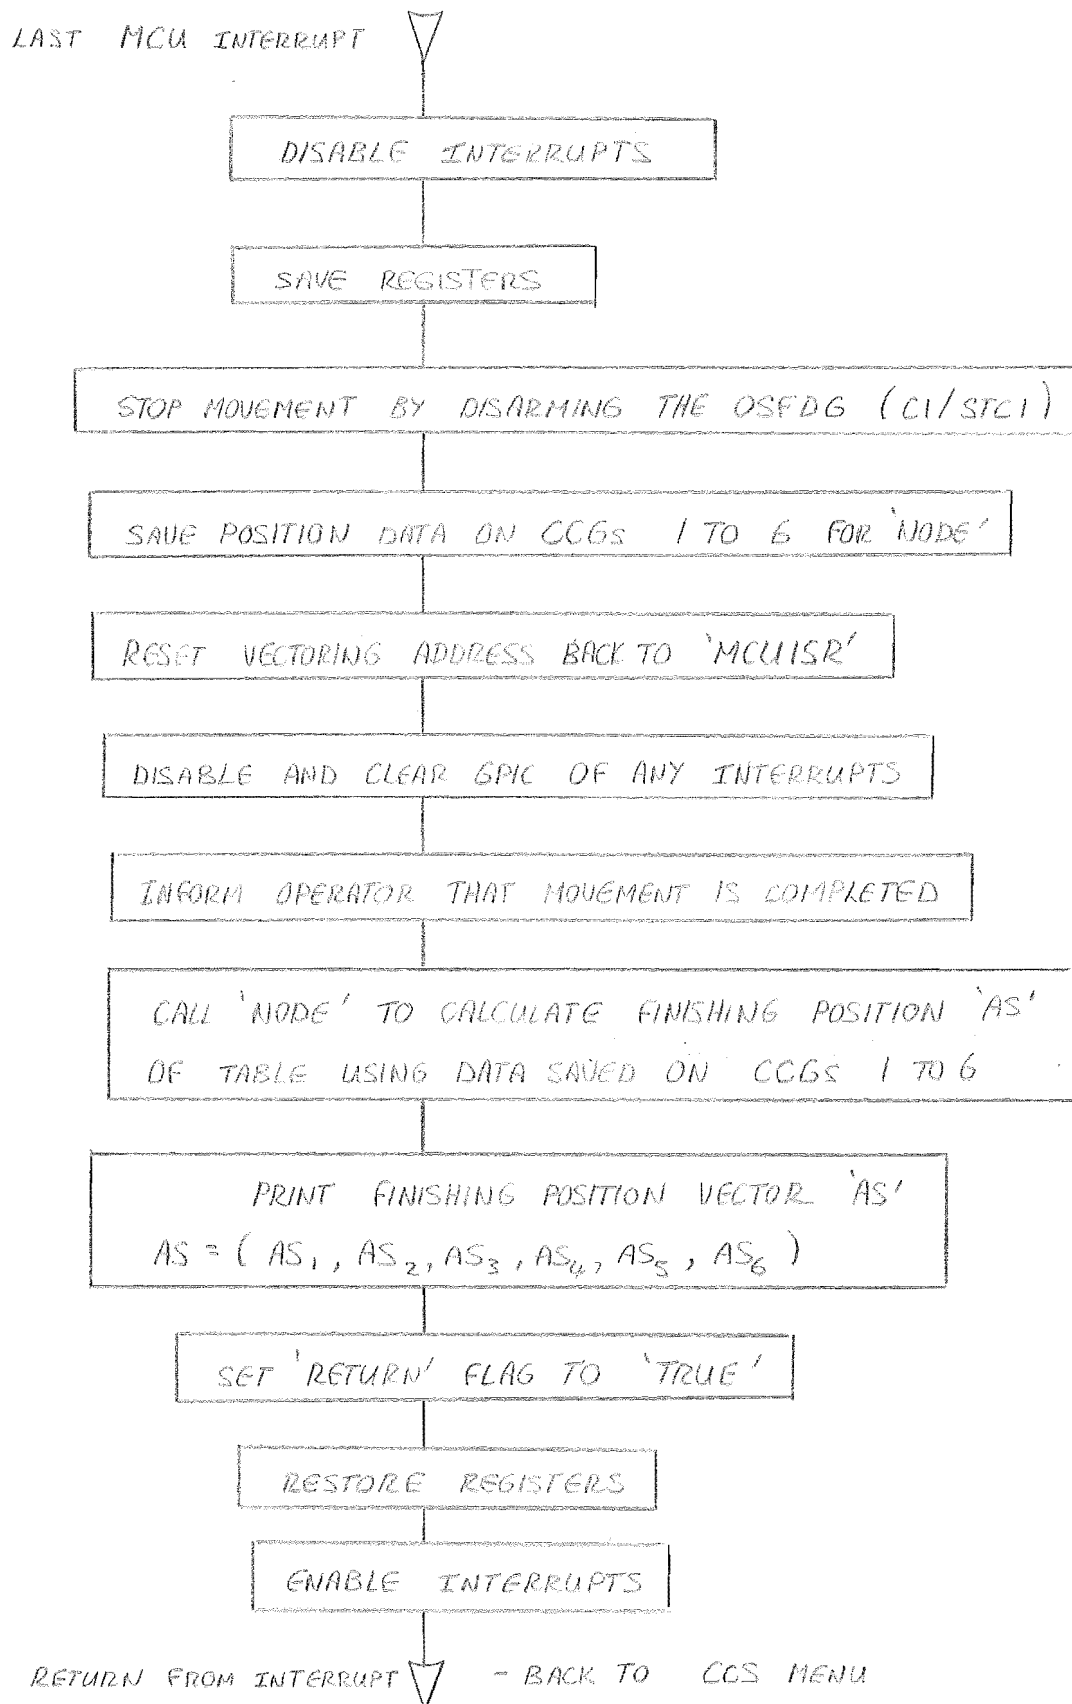 LAST MCU INTERRUPT
DISABLE INTERRUPTS
SAVE REGISTERS
STOP MOVEMENT BY DISARMING THE OSFDG (C1/STC1)
SAVE POSITION DATA ON CCGs 1 TO 6 FOR 'NODE'
RESET VECTORING ADDRESS BACK TO 'MCUISR'
DISABLE AND CLEAR GPIC OF ANY INTERRUPTS
INFORM OPERATOR THAT MOVEMENT IS COMPLETED
CALL 'NODE' TO CALCULATE FINISHING POSITION 'AS'
OF TABLE USING DATA SAVED ON CCGs 1 TO 6
PRINT FINISHING POSITION VECTOR 'AS'
AS = ( AS₁ , AS₂ , AS₃ , AS₄ , AS₅ , AS₆ )
SET 'RETURN' FLAG TO 'TRUE'
RESTORE REGISTERS
ENABLE INTERRUPTS
RETURN FROM INTERRUPT - BACK TO CCS MENU